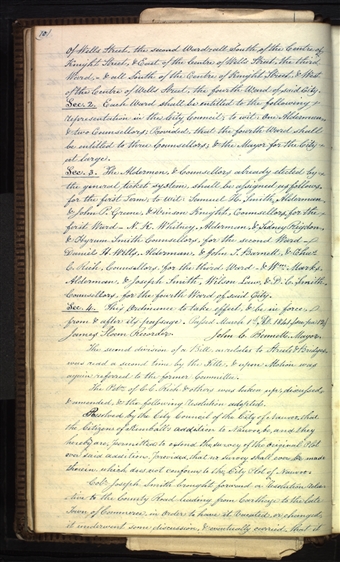 of Wells Street, the second Ward - all South of the Centre of
Knight Street, & East of the Centre of Wells Street, the third
Ward, - & all South of the Centre of Knight Street, & West
of the Centre of Wells Street, the fourth Ward of said City.
Sec. 2. Each Ward shall be entitled to the following
representation in the City Council; to wit: One Alderman
& two Counsellors; Provided, that the fourth Ward shall
be entitled to three Counsellors; & the Mayor for the City
at large.
Sec. 3. The Aldermen, & Counsellors already elected by
the general ticket system, shall be assigned as follows
for the first Term, to wit: Samuel H. Smith, Alderman
& John P. Greene, & Vinson Knight, Counsellors, for the
first Ward - N. K. Whitney, Alderman, & Sidney Rigdon
& Hyrum Smith Counsellors, for the second Ward -
Daniel H. Wells, Alderman, & John T. Barnett, & Chas.
C. Rich, Counsellors, for the third Ward - & Wm. Marks
Alderman, & Joseph Smith, Wilson Law, & D. C. Smith
Counsellors, for the fourth Ward of said City.
Sec. 4. This Ordinance to take effect, & be in force,
from & after its passage. Passed March 1st, A.D. 1841
James Sloan Recorder John C. Bennett, Mayor
The second division of a Bill, as relates to Streets & Bridges
was read a second time by the Title, & upon Motion was
again referred to the former Committee.
The Petn. of C. C. Rich & others was taken up, discussed
& amended, & the following Resolution adopted.
Resolved by the City Council of the City of Nauvoo, that
the Citizens of Kimball's addition to Nauvoo, be, and they
hereby are, permitted to extend the survey of the original Plot
over said addition, Provided, that no survey shall ever be made
therein which does not conform to the City Plot of Nauvoo.
Col. Joseph Smith brought forward a Resolution
relative to the County Road leading from Carthage to the
Town of Commerce, in order to have it Vacated, or changed,
it underwent some discussion, & eventually carried, that it